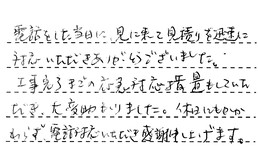 電話をした当日に、見に来て見積りを迅速に
対応いただきありがとうございました。
工事完了までの応急対応措置もしていた
だき、大変助かりました。休日にもかか
わらず電話対応いただき感謝申し上げます。